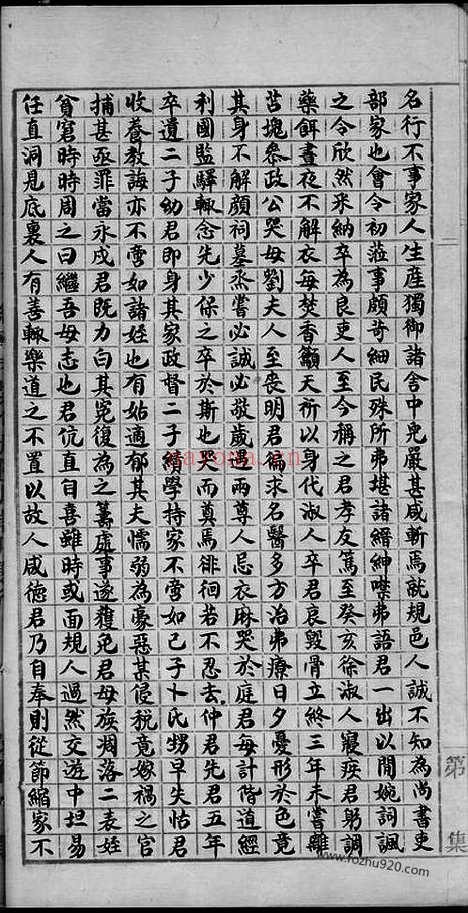 名行不事家人生産獨御諸舍中兒嚴甚咸斬焉就規邑人誠不知為尚書吏
部家也會令初蒞事頗苛細民殊所弗堪諸縉紳噤弗語君一出以閒婉詞諷
之令欣然采納卒為良吏人至今稱之君孝友篤至癸亥徐淑人寢疾君躬調
藥餌晝夜不解衣每焚香籲天祈以身代淑人卒君哀毀骨立終三年未嘗離
苫塊叅政公哭母劉夫人至喪明君徧求名醫多方治弗療日夕憂形於色竟
其身不解顏祠墓烝嘗必誠必敬歲遇兩尊人忌衣麻哭於庭君每計偕道經
利國監驛輒念先少保之卒於斯也哭而奠焉徘徊若不忍去仲君先君五年
卒遺二子幼君即身其家政督二子績學持家不啻如己子卜氏甥早失怙君
收養教誨亦不啻如諸姪也有姑適郁其夫懦弱為豪惡某侵稅竟嫁禍之官
捕甚亟罪當永戍君既力白其冤復為之籌處事遂獲免君母族凋落二表姪
貧窘時時周之曰繼吾母志也君伉直自喜雖時或面規人過然交遊中坦易
任直洞見底裏人有善輒樂道之不置以故人咸德君乃自奉則從節縮家不
第 集
nayona.cn
www.fozhu920.com